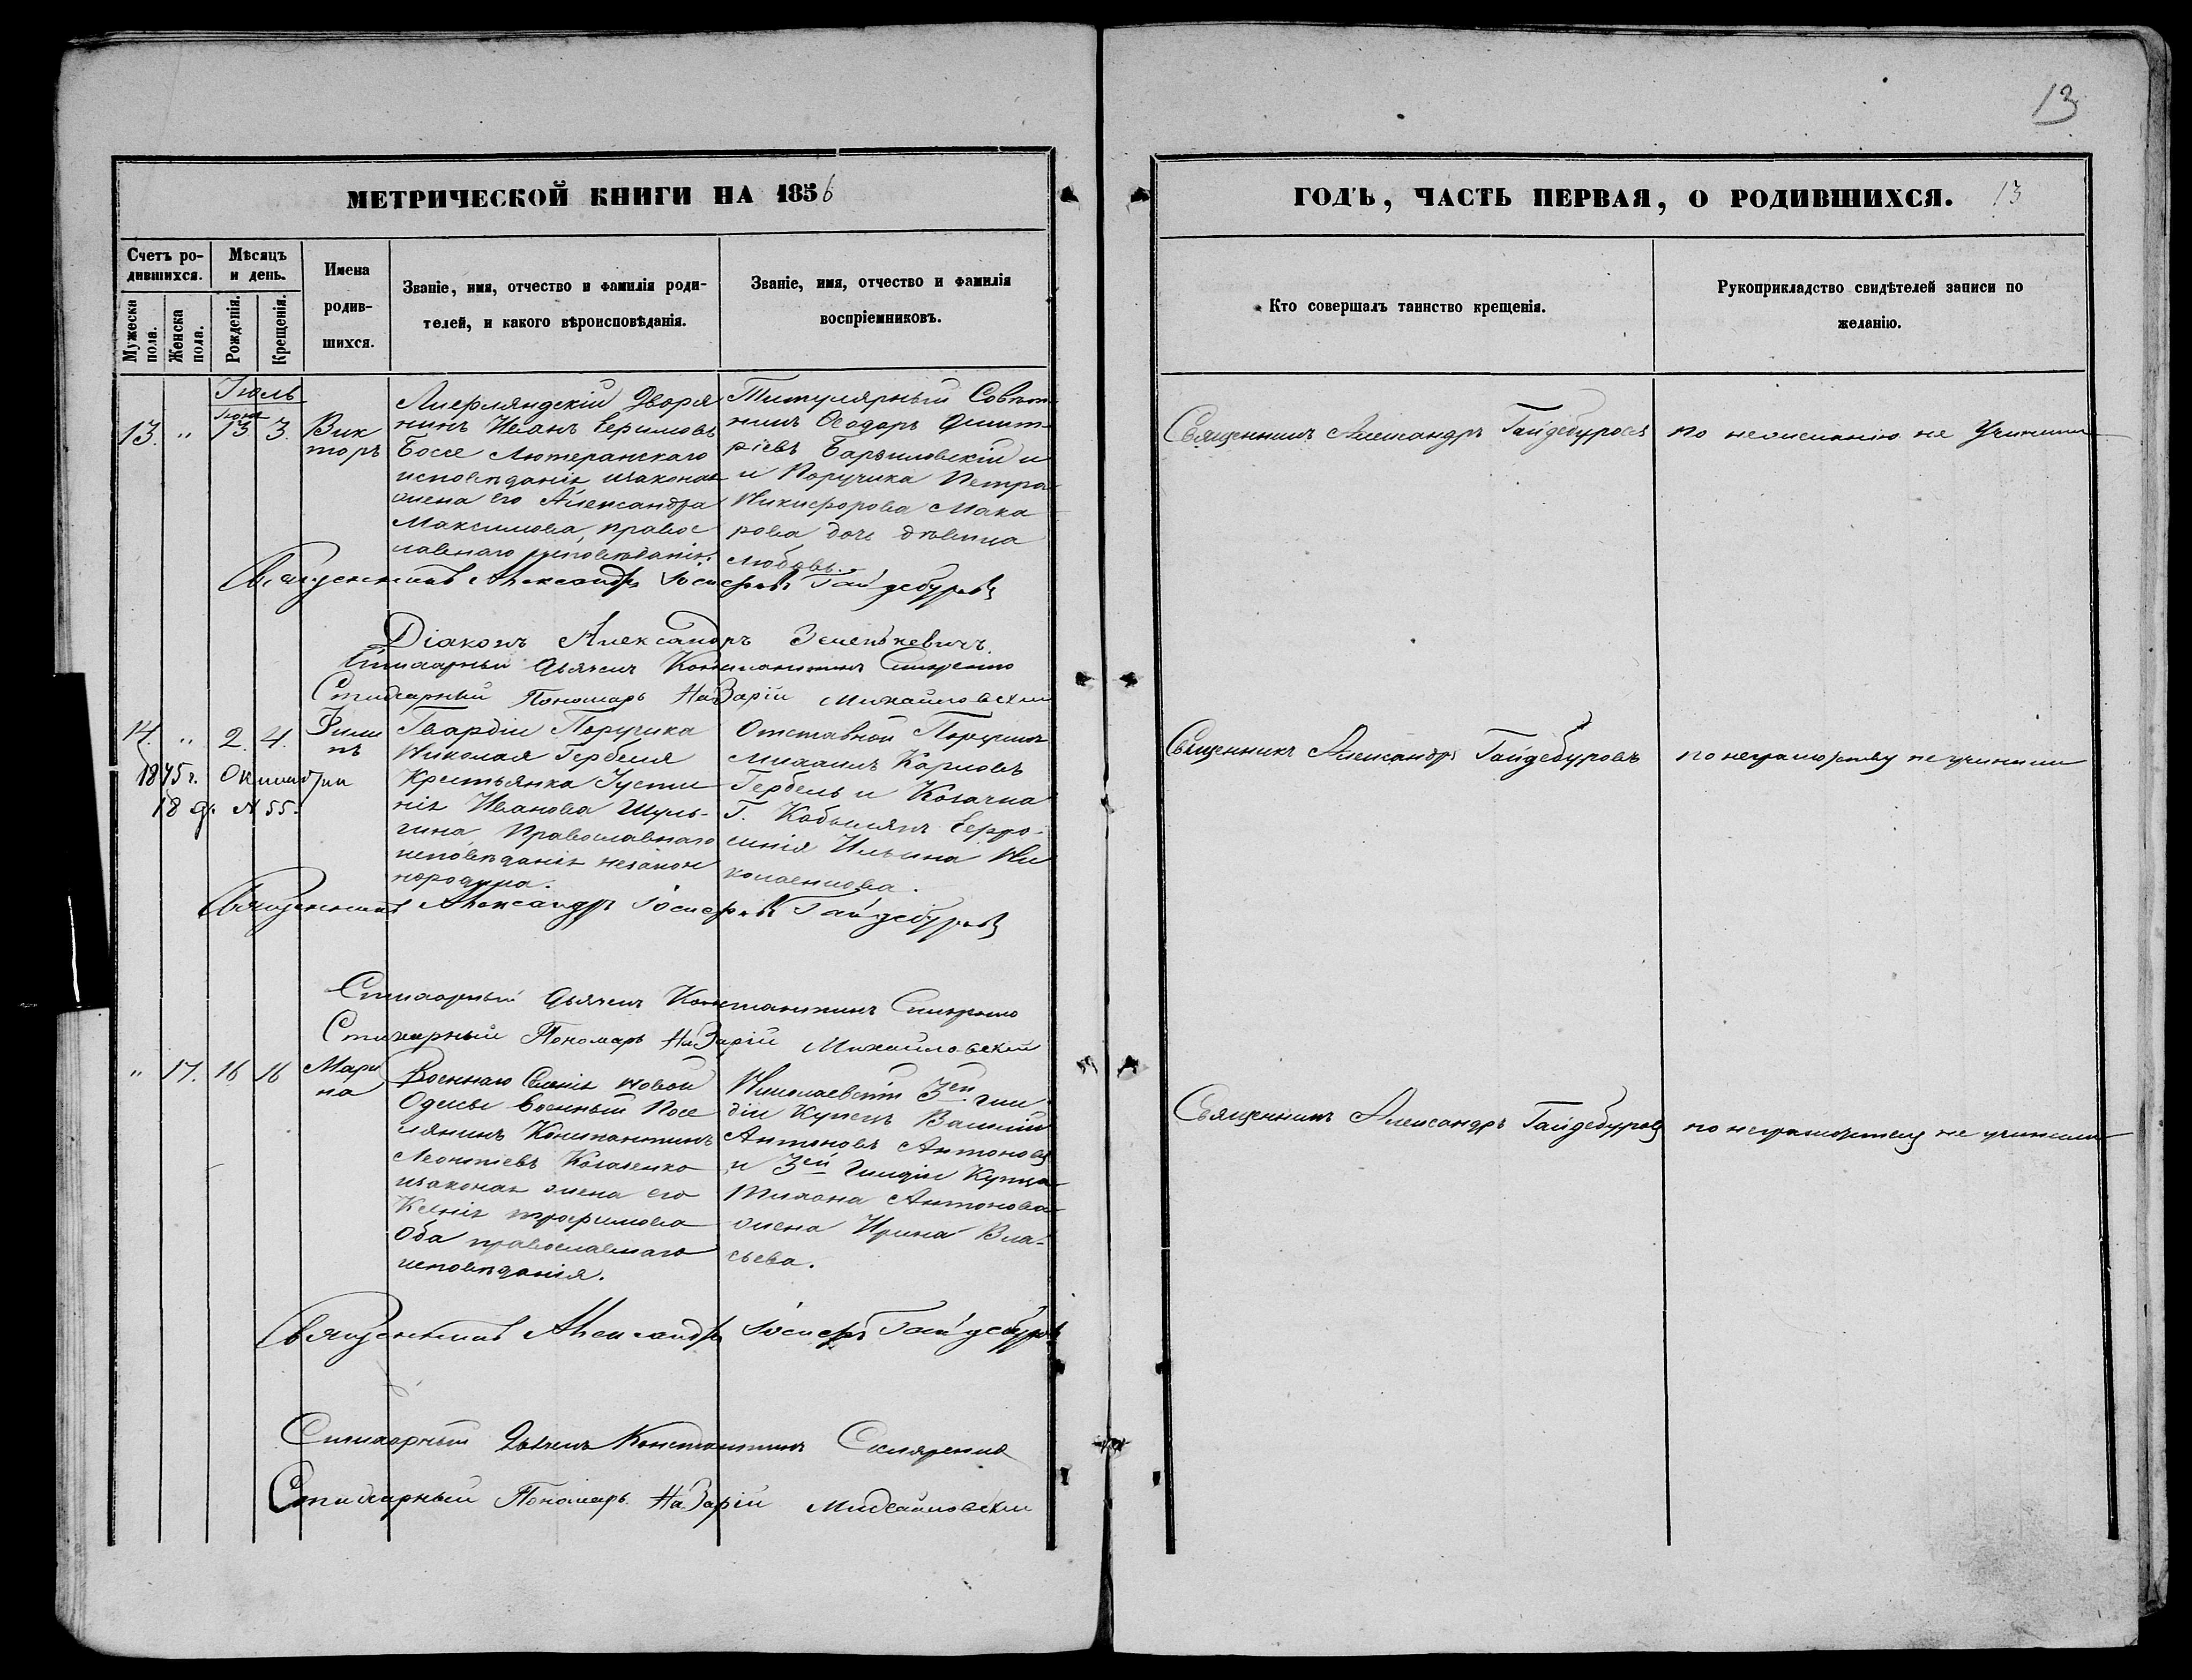 13
МЕТРИЧЕСКОЙ КНИГИ НА 1856
ГОДЪ, ЧАСТЬ ПЕРВАЯ, О РОДИВШИХСЯ. 13
Счетъ ро-
дившихся.
Мужеска
пола.
Женска
пола.
Мѣсяцъ
и день.
Рожденія.
Крещенія.
Имена
родив-
шихся.
Званіе, имя, отчество и фамилія роди-
телей, и какого вѣроисповѣданія.
Званіе, имя, отчество и фамилія
воспріемниковъ.
Кто совершалъ таинство крещенія.
Рукоприкладство свидѣтелей записи по
желанію.
Іюль
Іюня
13. " 13 3.
Вик
торъ
Лифляндскій Дворя
нинъ Иванъ Ефимовъ
Боссе Лютеранскаго
исповѣданія и законая
жена его Александра
Максимова, правос
лавнаго исповѣданія.
Титулярный Совѣт
никъ Ѳеодоръ Дмит
ріевъ и
и Поручика Петра
Никифорова Мака
рова дочь дѣвица
Любовь.
Священникъ Александръ Гайдебуровъ
по неживанію не учинили
Священникъ Александръ Іосифовъ Гайдебуровъ
Діаконъ Александръ Зеленкевичъ.
Стихарный Дьячекъ Константинъ Скляренко
Стихарный Пономарь Назарій Михайловскій
14. " 2. 4.
Фили
пъ
1875 г. Октября
18 д. N 55.
Гвардіи Поручика
Николая Гербеля
Крестьянка Густи
нія Иванова Шуль-
гина Православнаго
исповѣданія незакон
норожденна.
Отставной Поручикъ
Михаилъ Карловъ
Гербель и Козачка
Г. Кобелякъ Ефро-
синія Ильина Ни
колаенкова.
Священникъ Александръ Гайдебуровъ
по неграмотству не учинили
Священникъ Александръ Іосифовъ Гайдебуровъ
Стихарный Дьячекъ Константинъ Скляренко
Стихарный Пономарь Назарій Михайловскій
" 17. 16 16
Мари
на
Военнаго Селенія Новой
Одессы Военный Посе
лянинъ Константинъ
Леонтіевъ Козаченко
и законая жена его
Ксенія Трофимова
Оба православнаго
исповѣданія.
Николаевскій 3ей гил
діи Купецъ Василій
Антоновъ Антоновъ
и 3ей Гильдіи Купца
Тихона Антонова
жена Ирина Вла-
сьева.
Священникъ Александръ Гайдебуровъ
по неграмотству не учинили
Священникъ Александръ Іосифовъ Гайдебуровъ
Стихарный Дьячекъ Константинъ Скляренко
Стихарный Пономарь Назарій Михайловскій